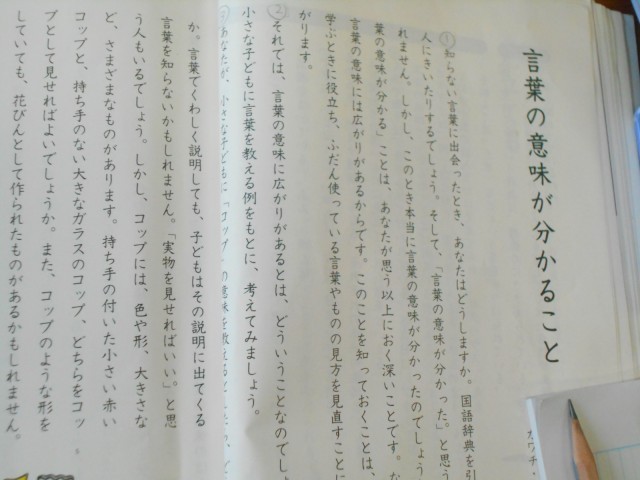 言葉の意味が分かること
①知らない言葉に出会ったとき、あなたはどうしますか。国語辞典を引
人にきいたりするでしょう。そして、「言葉の意味が分かった。」と思う
れません。しかし、このとき本当に言葉の意味が分かったのでしょう
葉の意味が分かる」ことは、あなたが思う以上におく深いことです。な
言葉の意味には広がりがあるからです。このことを知っておくことは、
学ぶときに役立ち、ふだん使っている言葉やものの見方を見直すことに
がります。
②それでは、言葉の意味に広がりがあるとは、どういうことなのでしょ
小さな子どもに言葉を教える例をもとに、考えてみましょう。
③あなたが、小さな子どもに「コップ」の意味を教えると
か。言葉でくわしく説明しても、子どもはその説明に出てくる
言葉を知らないかもしれません。「実物を見せればいい。」と思
う人もいるでしょう。しかし、コップには、色や形、大きさな
ど、さまざまなものがあります。持ち手の付いた小さい赤い
コップと、持ち手のない大きなガラスのコップ、どちらをコッ
プとして見せればよいでしょうか。また、コップのような形を
していても、花びんとして作られたものがあるかもしれません。
5